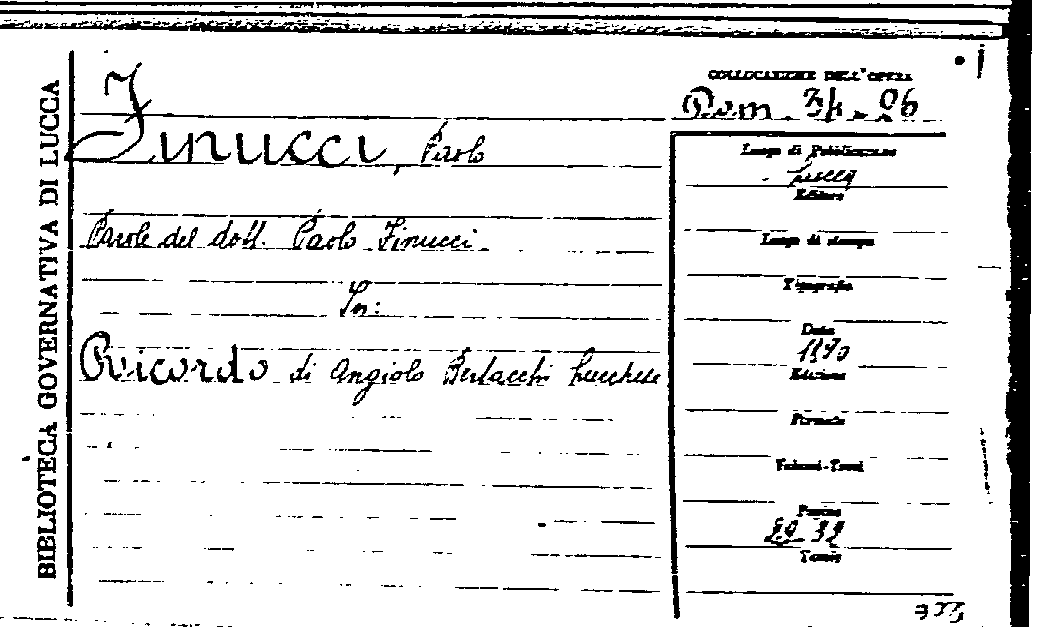 BIBLIOTECA GOVERNATIVA DI LUCCA
COLLOCAZIONE DELL'OPERA
F
Finucci, Paolo
Parole del dott. Paolo Finucci.
In:
Ricordo di Angiolo Bertacchi Lucchese
Luogo di Pubblicazione
Lucca
Editore
Luogo di stampa
Tipografia
Data
1870
Edizione
Formato
Volumi-Tomi
Pagine
29-32